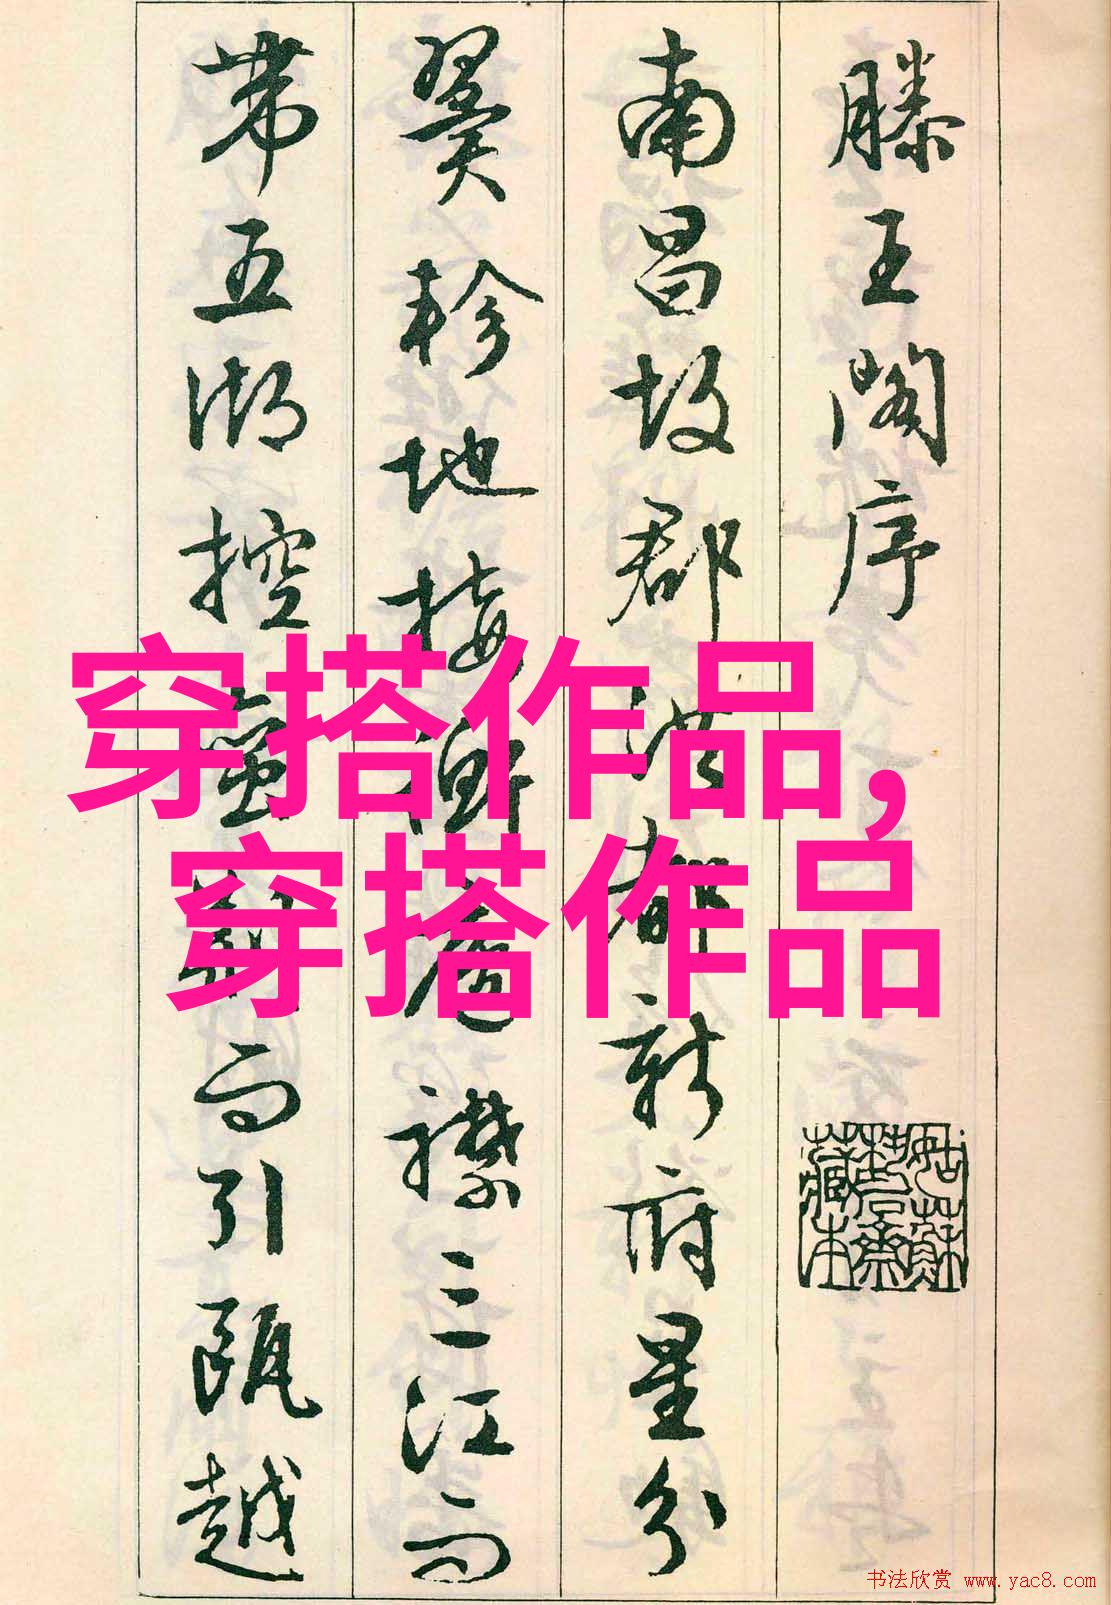 滕王閣序
南昌故郡洪都新府星分
翼軫地接衡廬襟三江而
帶五湖控蠻荊而引甌越
穿搭作品,
穿搭作品
姑蘇
藏本
书法欣赏 www.yac8.com